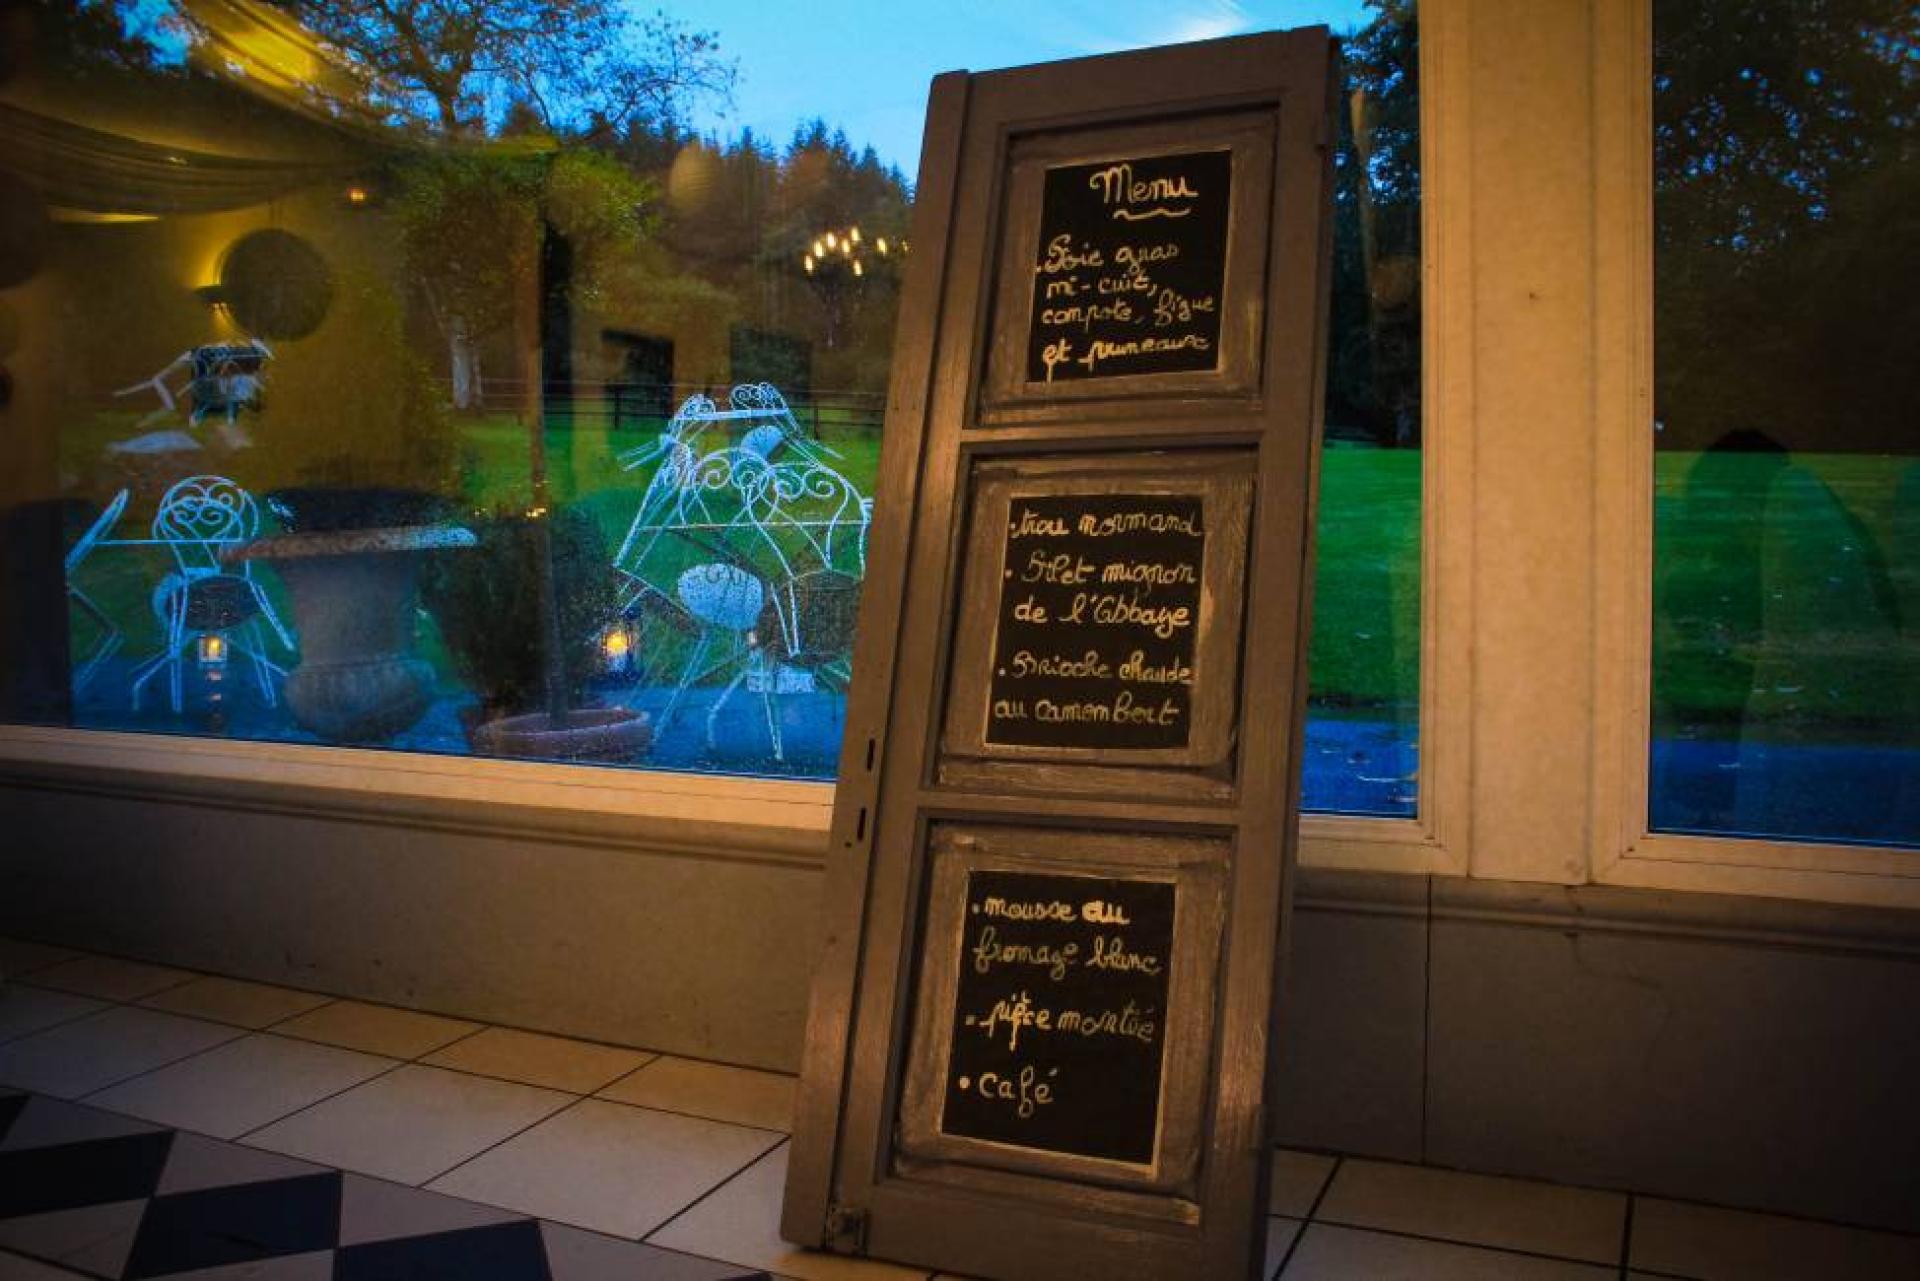 Menu
. Foie gras
mi-cuit,
compote, figue
et pruneaux
. trou normand
. Filet mignon
de l'Abbaye
. Brioche chaude
au camembert
. mousse au
fromage blanc
. pièce montée
. café